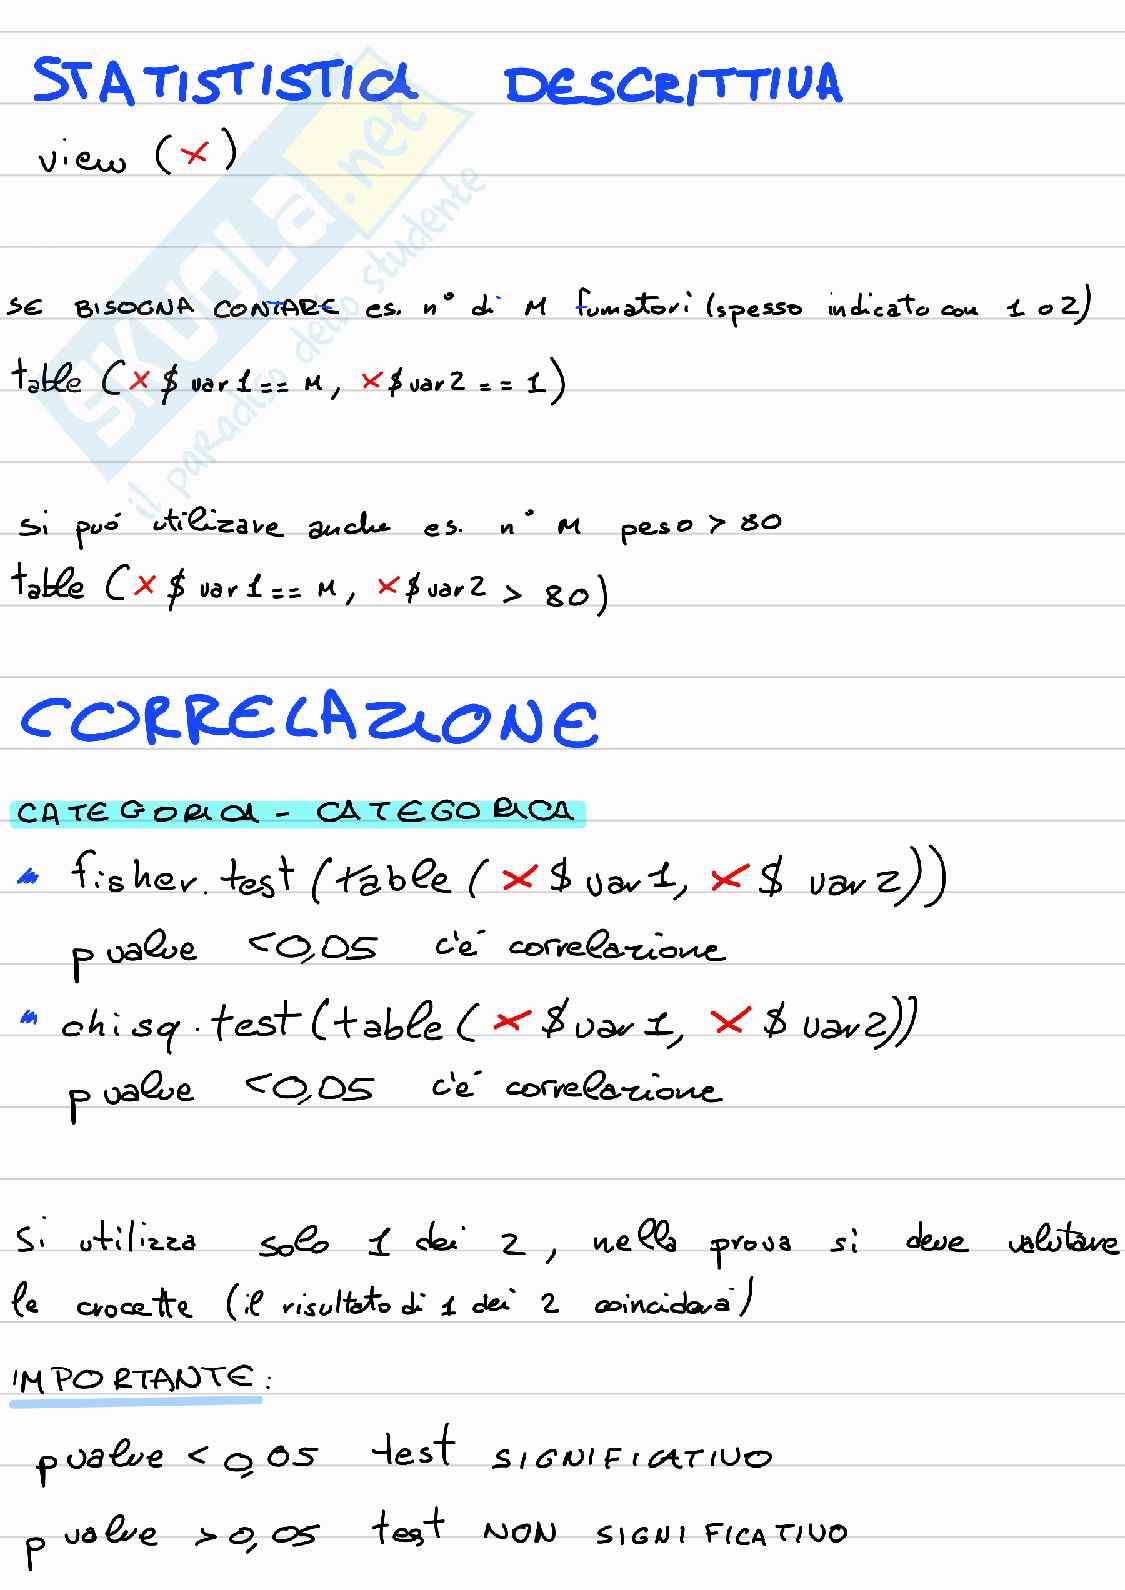 STATISTISTICA DESCRITTIVA
view (x)
SE BISOGNA CONTARE es. n° di M fumatori (spesso indicato con 1 o 2)
table (x$var1== M, x$var2 == 1)
si può utilizzare anche es. n° M peso > 80
table (x$var1== M, x$var2 > 80)
CORRELAZIONE
CATEGORICA - CATEGORICA
fisher.test (table (x$var1, x$ var2))
p value <0,05 c'è correlazione
chisq.test (table (x$var1, x$ var2))
p value <0,05 c'è correlazione
Si utilizza solo 1 dei 2, nella prova si deve valutare
le crocette (il risultato di 1 dei 2 coinciderà)
IMPORTANTE:
p value < 0,05 test SIGNIFICATIVO
p value > 0,05 test NON SIGNIFICATIVO
SKUOLA.net
il paradiso dello studente